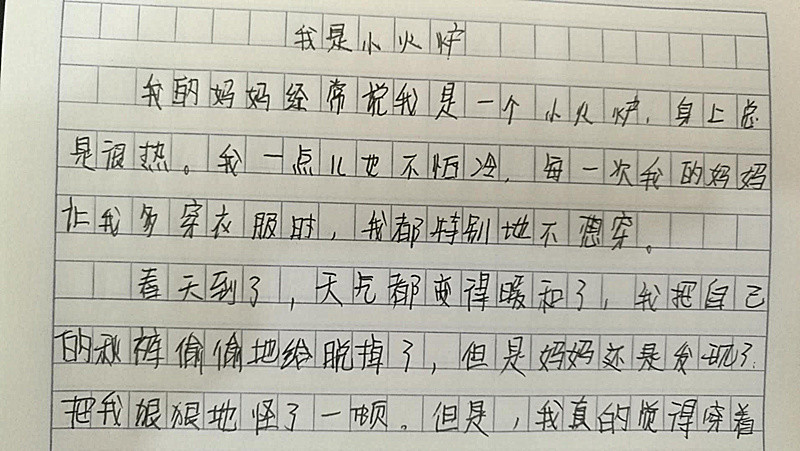 我是小火炉
我的妈妈经常说我是一个小火炉，身上总
是很热。我一点儿也不怕冷，每一次我的妈妈
让我多穿衣服时，我都特别地不想穿。
春天到了，天气都变得暖和了，我把自己
的秋裤偷偷地给脱掉了，但是妈妈还是发现了.
把我狠狠地怪了一顿。但是，我真的觉得穿着